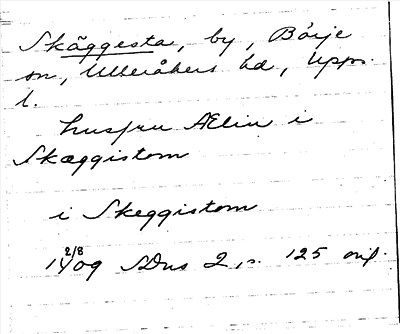 Skäggesta, by, Börje
sn, Ulleråkers hd, Upps.
l.
husfru Ælin i
Skæggistom
i Skeggistom
2/8 1409 SDns 2, s. 125 orig.